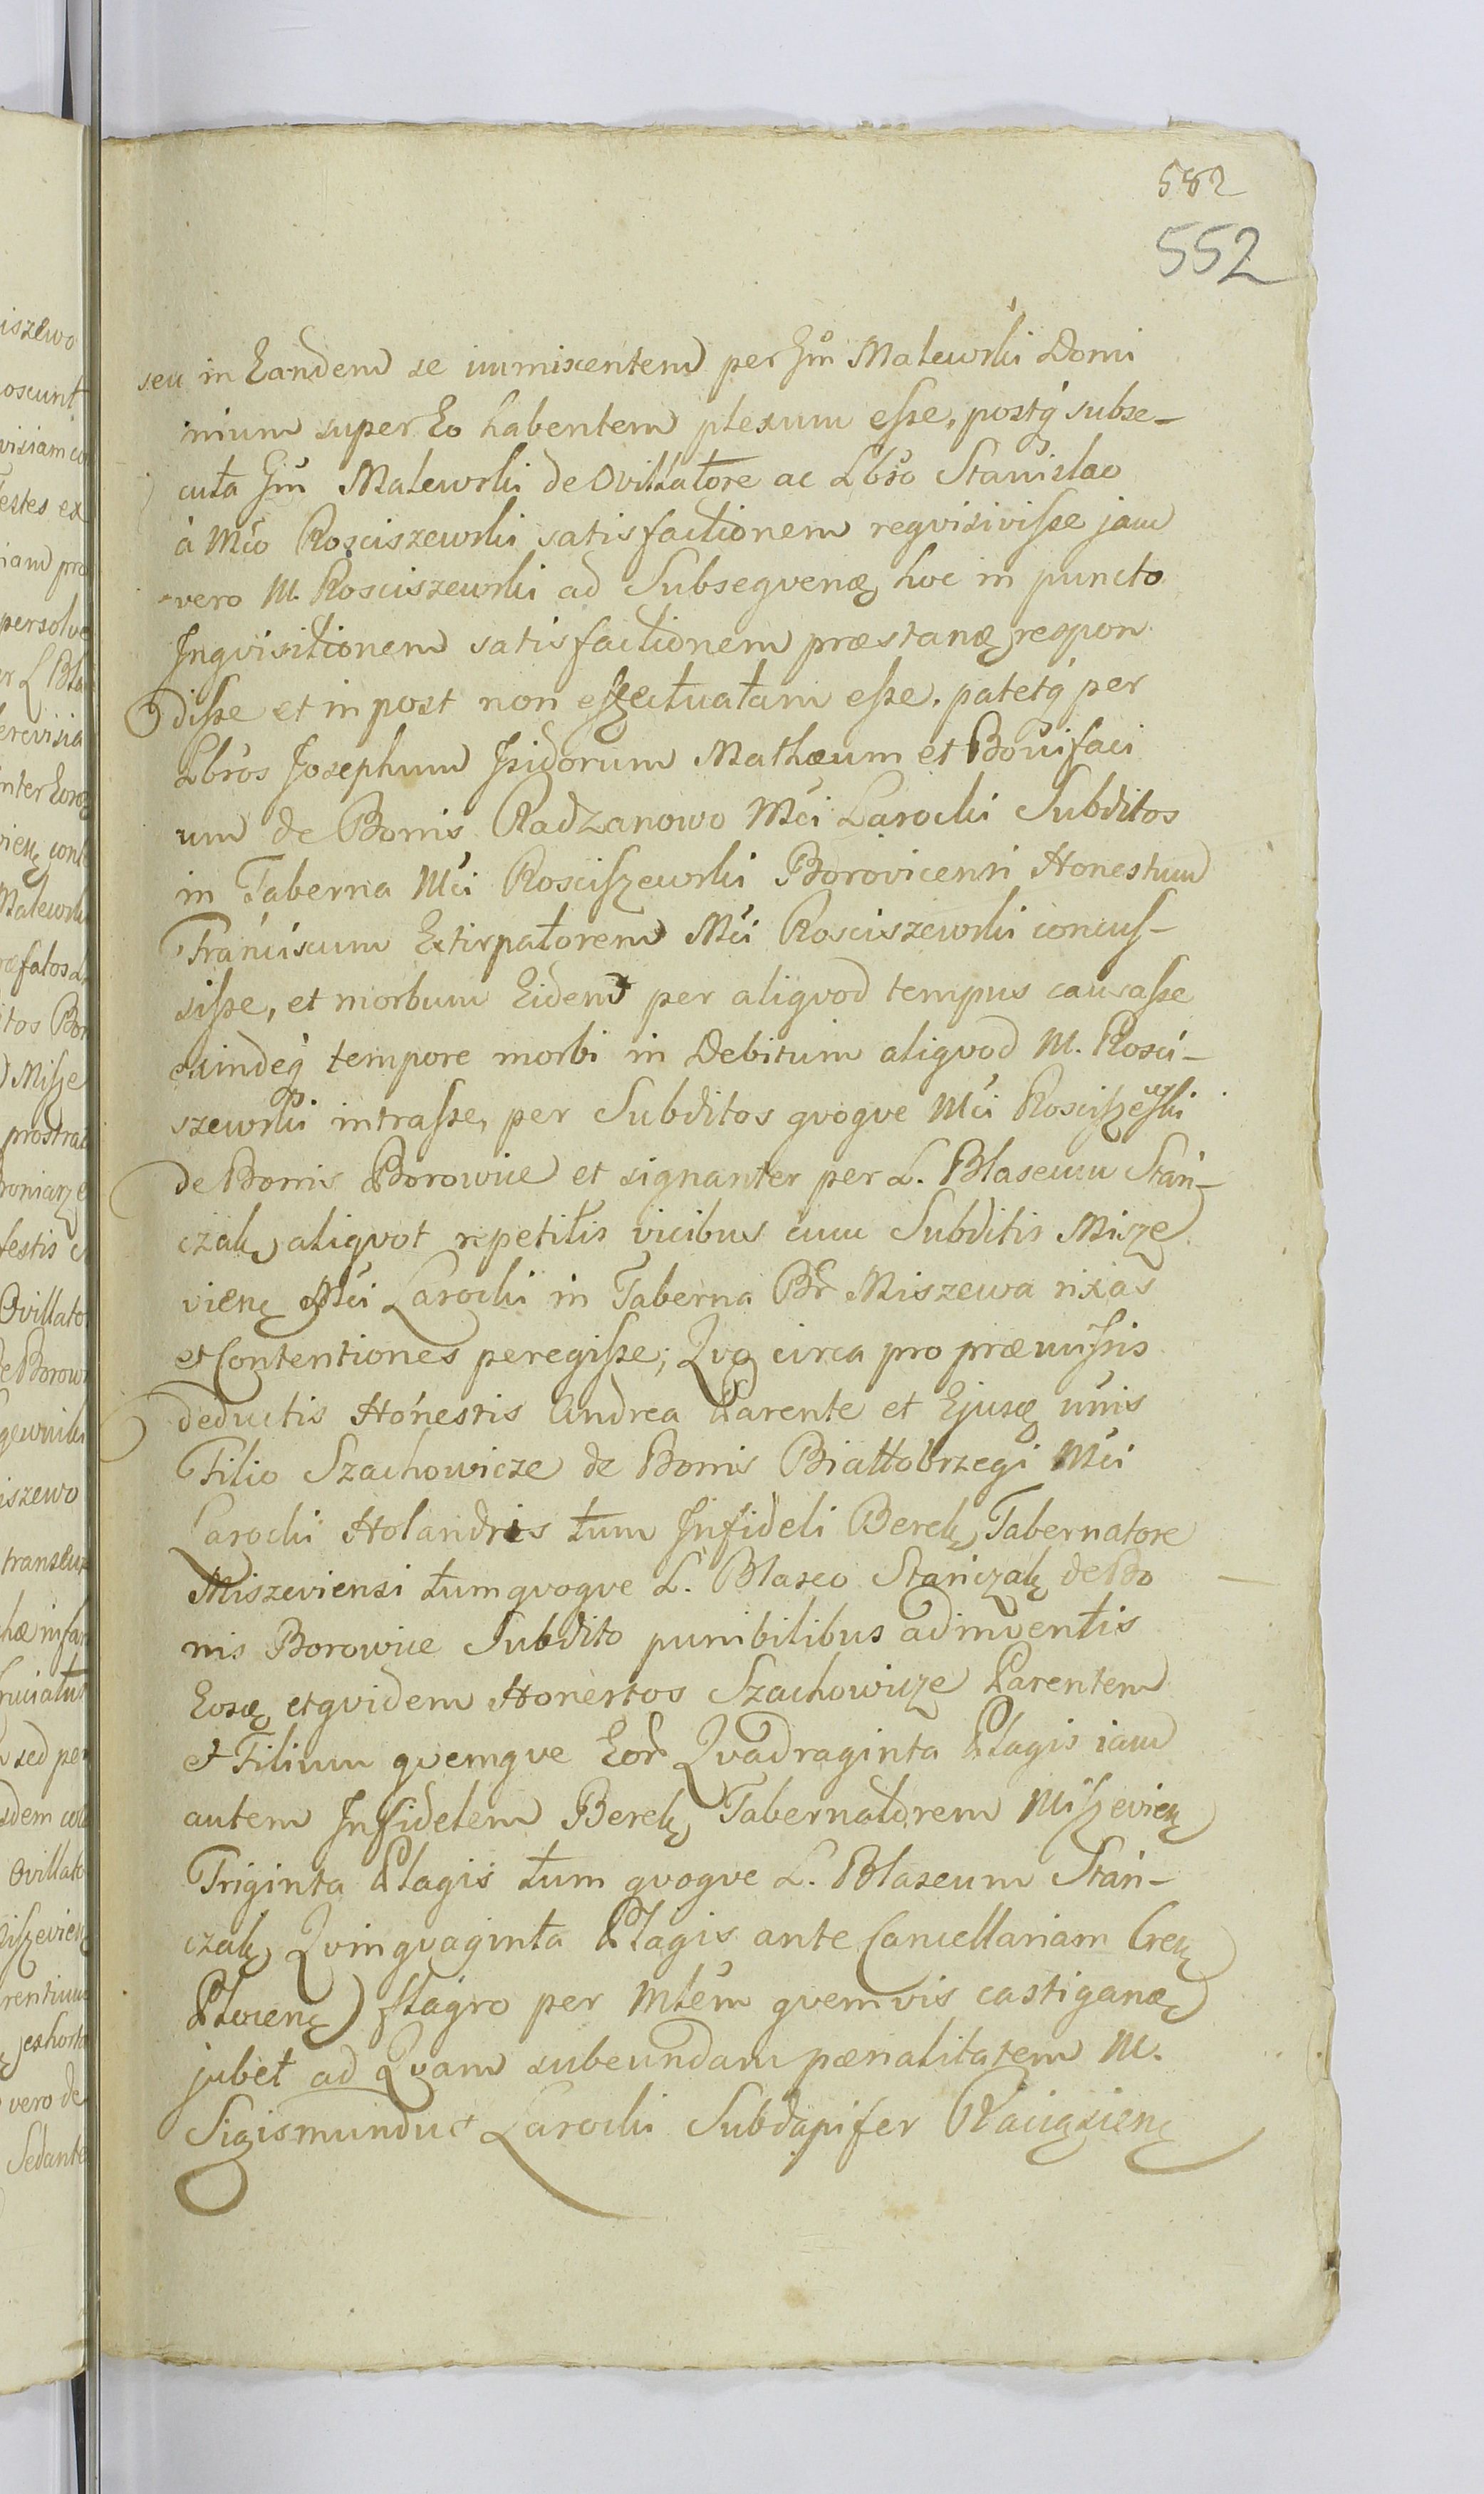 582
552
seu in Eandem se immiscentem per Gm̃ Malewski Domi
nium super Eo habentem plexum eſse, postq́ subse-
cuta Gm̃ Malewski de Ovillatore ac Lbr̃o Stanislao
à Mc̃o Rosciszewski satisfactionem reqvisiviſse jam
vero M. Rosciszewski ad Subseqvenꝫ hoc in puncto
Inqvisitionem satisfactionem præstanꝫ respon
diſse et in post non effectuatam eſse, patetq́ per
Lbr̃os Josephum Isidorum Mathæum et Bonifaci
um de Bonis Radzanowo Mc̃i Larocki Subditos
in Taberna Mc̃i Rosciſzewski Borovicensi Honestum
Franciscum Extirpatorem Mc̃i Rosciszewski concuſ-
siſse, et morbum Eidem per aliqvod tempus causaſse
exindeq́ tempore morbi in Debitum aliqvod M. Rosci-
szewski intraſse, per Subditos qvoqve Mc̃i Rosciſzewski
de Bonis Borowice et signanter per L. Blaseum Stan-
czak aliqvot repetitis vicibus cum Subditis Misze
vienꝫ Mc̃i Larocki in Taberna Br̃ Miszewa rixas
et Contentiones peregiſse; Qvo circa pro præmiſsis
deductis Honestis Andrea Parente et Ejusꝫ unis
Filio Szachowicze de Bonis Białłobrzegi Mc̃i
Larocki Holandris tum Infideli Berek Tabernatore
Miszeviensi tum qvoqve L. Blaseo Stanczak de Bo
nis Borowice Subdito punibilibus adinventis
Eosꝫ et qvidem Honestos Szachowicze Parentem
et Filium qvemqve Eor̃ Qvadraginta Plagis iam
autem Infidelem Berek Tabernatorem Miſzevienꝫ
Triginta Plagis tum qvoqve L. Blaseum Stan-
czak Qvinqvaginta Plagis ante Cancellariam Crenꝫ
Plocenꝫ flagro per Mlẽm qvemvis castiganꝫ
jubet ad Qvam subeundam pænalitatem M.
Sigismundus Larocki Subdapifer Raciążienꝫ